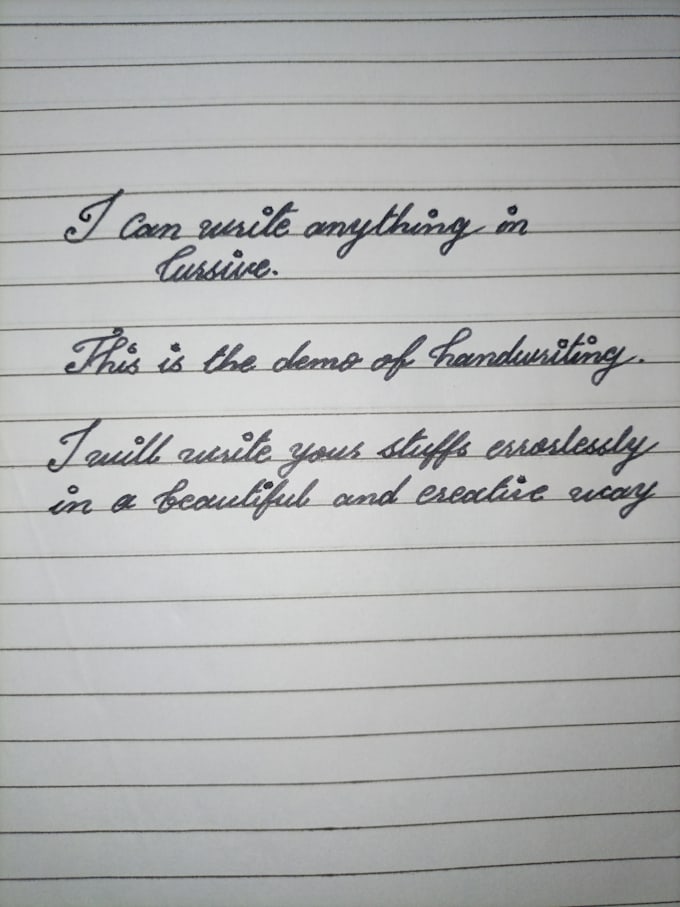 I can write anything in
Cursive.
This is the demo of handwriting.
I will write your stuffs errorlessly
in a beautiful and creative way